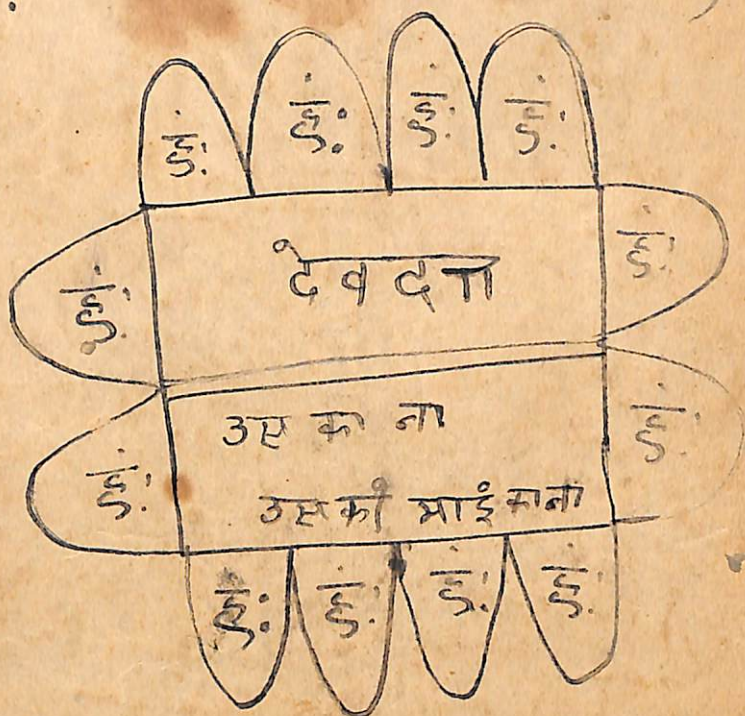 हं: हं: हं: हं:
हं: देवदत्त हं:
उस का ना
हं: हं:
उसकी माई का ना
हं: हं: हं: हं: